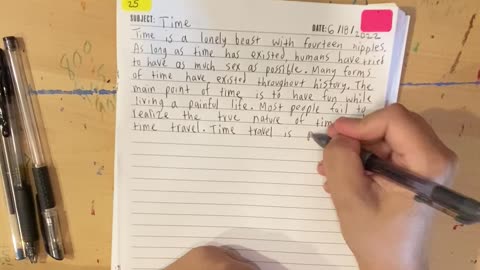 25
SUBJECT: Time
DATE: 6/18/2022
Time is a lonely beast with fourteen nipples.
As long as time has existed, humans have tried
to have as much sex as possible. Many forms
of time have existed throughout history. The
main point of time is to have fun while
living a painful life. Most people fail to
realize the true nature of time
time travel. Time travel is
800